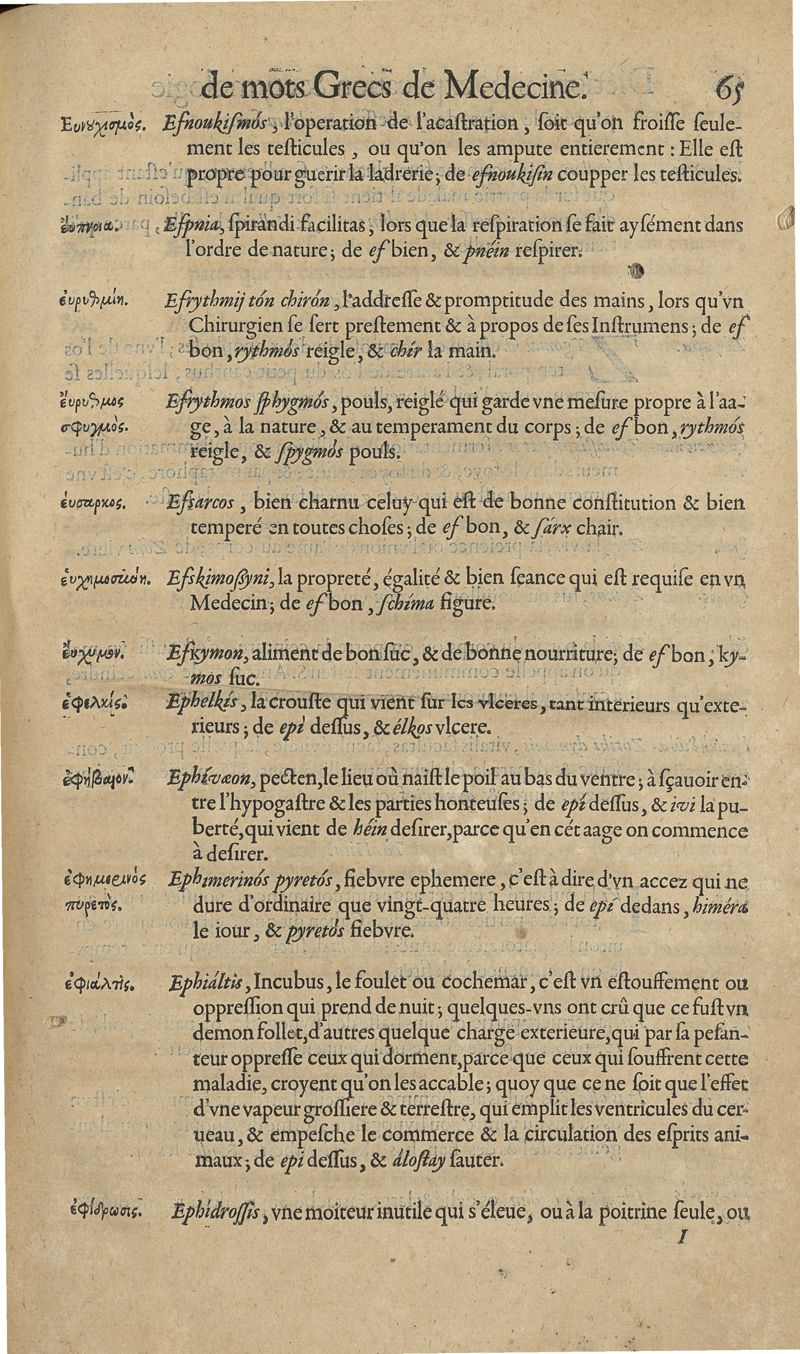 de mots Grecs de Medecine. 65
Ευνουχισμὸς. Efnoukiſmós, l'operation de l'acaſtration, ſoit qu'on froiſſe ſeule-
ment les teſticules, ou qu'on les ampute entierement : Elle eſt
propre pour guerir la ladrerie; de efnoukiſin coupper les teſticules.
ἐυπνοια. Efpnia, ſpirandi facilitas, lors que la reſpiration ſe fait ayſément dans
l'ordre de nature; de ef bien, & pnéin reſpirer.
ἐυρυθμίη. Efrythmij tón chirón, l'addreſſe & promptitude des mains, lors qu'vn
Chirurgien ſe ſert preſtement & à propos de ſes Inſtrumens; de ef
bon, rythmós reigle, & chír la main.
ἐυρυθμος Efrythmos ſphygmós, pouls, reiglé qui garde vne meſure propre à l'aa-
σφυγμὸς. ge, à la nature, & au temperament du corps; de ef bon, rythmós
reigle, & ſpygmós pouls.
ἐυσαρκος. Efſarcos, bien charnu celuy qui eſt de bonne conſtitution & bien
temperé en toutes choſes; de ef bon, & ſárx chair.
Efskimoſſyni, la propreté, égalité & bien ſeance qui eſt requiſe en vn
Medecin; de ef bon, ſchíma figure.
ἐυχυμον. Efkymon, aliment de bon ſuc, & de bonne nourriture; de ef bon, ky-
mos ſuc.
ἐφελκὶς. Ephelkís, la crouſte qui vient ſur les vlceres, tant interieurs qu'exte-
rieurs; de epi deſſus, & élkos vlcere.
ἐφήβαιον. Ephívæon, pecten, le lieu où naiſt le poil au bas du ventre; à ſçauoir en-
tre l'hypogaſtre & les parties honteuſes; de epi deſſus, & ivi la pu-
berté, qui vient de héin deſirer, parce qu'en cét aage on commence
à deſirer.
ἐφημερινὸς Ephimerinós pyretós, fiebvre ephemere, c'eſt à dire d'vn accez qui ne
πυρετὸς. dure d'ordinaire que vingt-quatre heures; de epí dedans, himéra
le iour, & pyretós fiebvre.
ἐφιάλτης. Ephiáltis, Incubus, le foulet ou cochemar, c'eſt vn eſtouffement ou
oppreſſion qui prend de nuit; quelques-vns ont crû que ce fuſt vn
demon follet, d'autres quelque charge exterieure, qui par ſa peſan-
teur oppreſſe ceux qui dorment, parce que ceux qui ſouffrent cette
maladie, croyent qu'on les accable; quoy que ce ne ſoit que l'effet
d'vne vapeur groſſiere & terreſtre, qui emplit les ventricules du cer-
ueau, & empeſche le commerce & la circulation des eſprits ani-
maux; de epi deſſus, & áloſtay ſauter.
ἐφίδρωσις. Ephídroſſis, vne moiteur inutile qui s'éleue, ou à la poitrine ſeule, ou
I